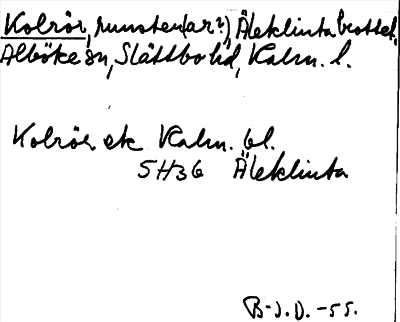 Kolrör, runsten(ar?), Äleklinta
Alböke sn, Slättbo hd, Kalm. l.
Kolrör ek Kalm. bl.
5H36 Äleklinta
B-J.D. -55.